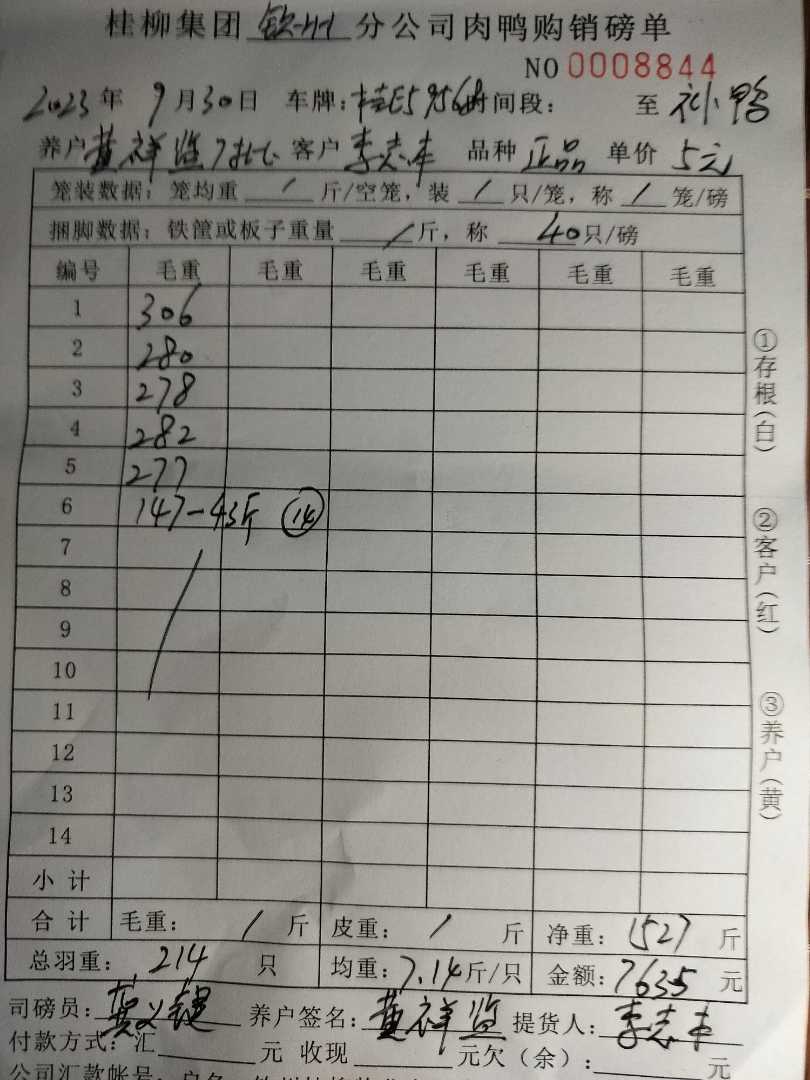 桂柳集团 钦州 分公司肉鸭购销磅单
NO 0008844
2023年 9月30日 车牌:桂E5956 时间段: 至 补鸭
养户 黄祥监7批 客户 李志丰 品种 正品 单价 5元
笼装数据:笼均重 / 斤/空笼,装 / 只/笼,称 / 笼/磅
捆脚数据:铁筐或板子重量 / 斤,称 40只/磅
编号 毛重 毛重 毛重 毛重 毛重 毛重
1 306
2 280
3 278
4 282
5 277
6 147-43斤 ⑭
7
8
9
10
11
12
13
14
小计
合计 毛重: / 斤 皮重: / 斤 净重: 1527 斤
总羽重: 214 只 均重: 7.14斤/只 金额: 7635 元
司磅员: 养户签名: 黄祥监 提货人: 李志丰
付款方式:汇 元 收现 元欠(余): 元
公司汇款帐号:户名:
①存根(白)
②客户(红)
③养户(黄)